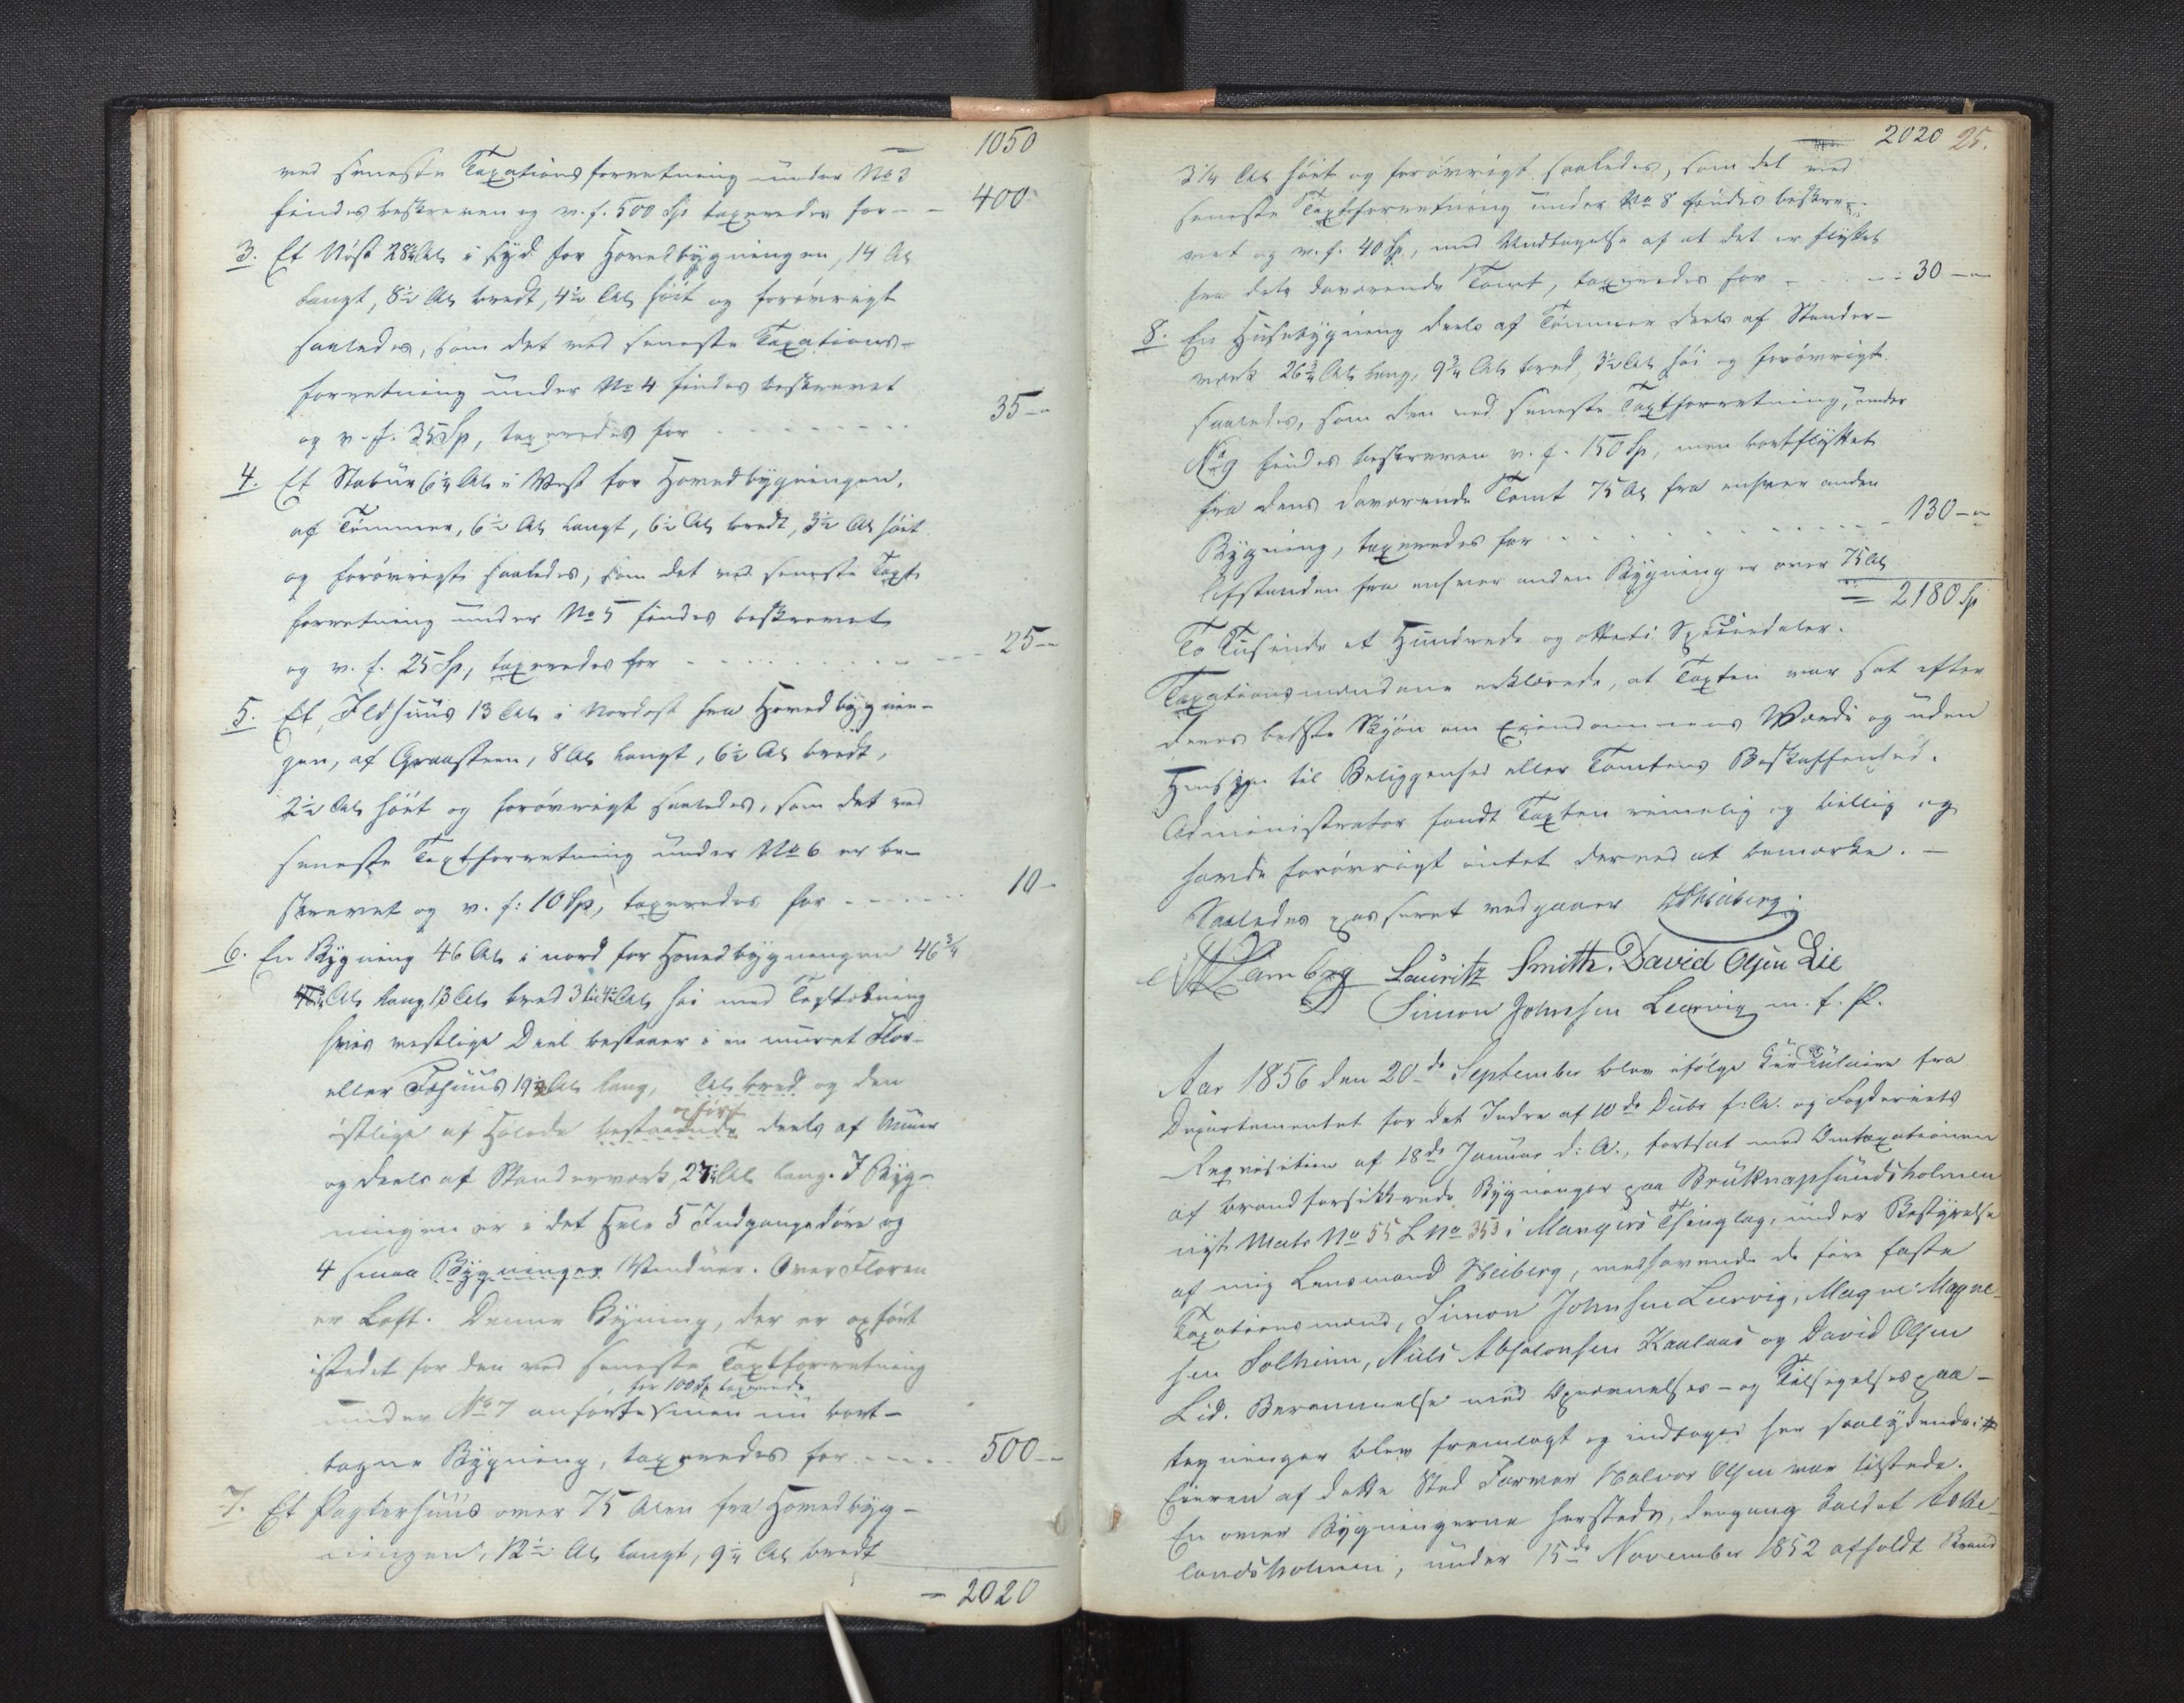 1050
ved seneste Taxationsforretning under No 3
findes beskreven og v. f. 500 Sp taxeredes for - - 400
3. Et Nøst 28¼ Al i Syd for Hovedbygningen, 14 Al
langt, 8½ Al bredt, 4½ Al høit og forøvrigt
saaledes, som det ved seneste Taxations-
forretning under No 4 findes beskrevet
og v. f. 35 Sp, taxeredes for - - - - - - - - 35 -
4. Et Stabuur 6¼ Al i Vest for Hovedbygningen,
af Tømmer, 6½ Al langt, 6½ Al bredt, 3½ Al høit
og forøvrigt saaledes, som det ved seneste Taxt-
forretning under No 5 findes beskrevet
og v. f. 25 Sp, taxeredes for - - - - - - - - 25 -
5. Et Ildhuus 13 Al i Nordost fra Hovedbygnin-
gen, af Graasteen, 8 Al langt, 6½ Al bredt,
2½ Al høit og forøvrigt saaledes, som det ved
seneste Taxtforretning under No 6 er be-
skrevet og v. f: 10 Sp, taxeredes for - - - - - - 10 -
6. En Bygning 46 Al i nord for Hovedbygningen 46¾
Al lang, 13 Al bred 3 til 4½ Al høi med Tagtækning
hvis vestlige Deel bestaaer i en muret Flor-
eller Fæhuus 19½ Al lang, Al bred og den
opført
østlige af Hølade bestaaende deels af Muur
og deels af Standerværk, 27¼ Al lang. I Byg-
ningen er i det Hele 5 Indgangsdøre og
4 smaa Bygninger Vinduer. Over Floren
er Loft. Denne Bygning, der er opført
istedet for den ved seneste Taxtforretning
for 100 Sp taxerede
under No 7 anførte men nu bort-
tagne Bygning, taxeredes for - - - - - 500 -
7. Et Pagterhuus over 75 Alen fra Hovedbyg-
ningen, 12½ Al langt, 9¼ Al bredt
- 2020
2020 25.
3¼ Al høit og forøvrigt saaledes, som det ved
seneste Taxtforretning under No 8 findes beskre-
vet og v. f. 40 Sp, med Undtagelse af at det er flyttet
fra dets daværende Tomt, taxeredes for - - - - 30 -
8. En Huusbygning deels af Tømmer deels af Stander-
værk 26¾ Al lang, 9¾ Al bred, 3½ Al høi og forøvrigt
saaledes, som den ved seneste Taxtforretning, under
No 9 findes beskreven v. f. 150 Sp, men bortflyttet
fra dens daværende Tomt 75 Al fra enhver anden
Bygning, taxeredes for - - - - - - - - 130 -
Afstanden fra enhver anden Bygning er over 75 Al
= 2180 Sp
To Tusinde et Hundrede og otteti Speciedaler.
Taxationsmændene erklærede, at Taxten var sat efter
deres bedste Skjøn om Eiendommens Værdi og uden
Hensyn til Beliggenhed eller Tomtens Beskaffenhed.
Administrator fandt Taxten rimelig og billig og
havde forøvrigt intet derved at bemærke. -
Saaledes passeret vedgaaer Heiberg.
Lauritz Smith. David Olsen Lie
Simon Johnsen Leervig m. f. P.
Aar 1856 den 20de September blev ifølge Cirkulaire fra
Departementet for det Indre af 10de Decbr f: A. og Fogderiets
Reqvisition af 18de Januar d: A., fortsat med Omtaxationen
af brandforsikkrede Bygninger paa Bruknapsundsholmen
nyt Matr No 55 L No 353 i Mangers Thinglag, under Bestyrelse
af mig Lensmand Heiberg, medhavende de fire faste
Taxationsmænd, Simon Johnsen Leervig, Magne Magne-
sen Solheim, Niels Absalonsen Kaalaas og David Olsen
Lid. Berammelse med Opnævnelses- og Tilsigelsespaa-
tegninger blev fremlagt og indtages her saalydende: #
Eieren af dette Sted Farver Halvor Olsen var tilstede.
En over Bygningerne hersteds, dengang kaldet Aske-
landsholmen, under 15de November 1852 afholdt Brand